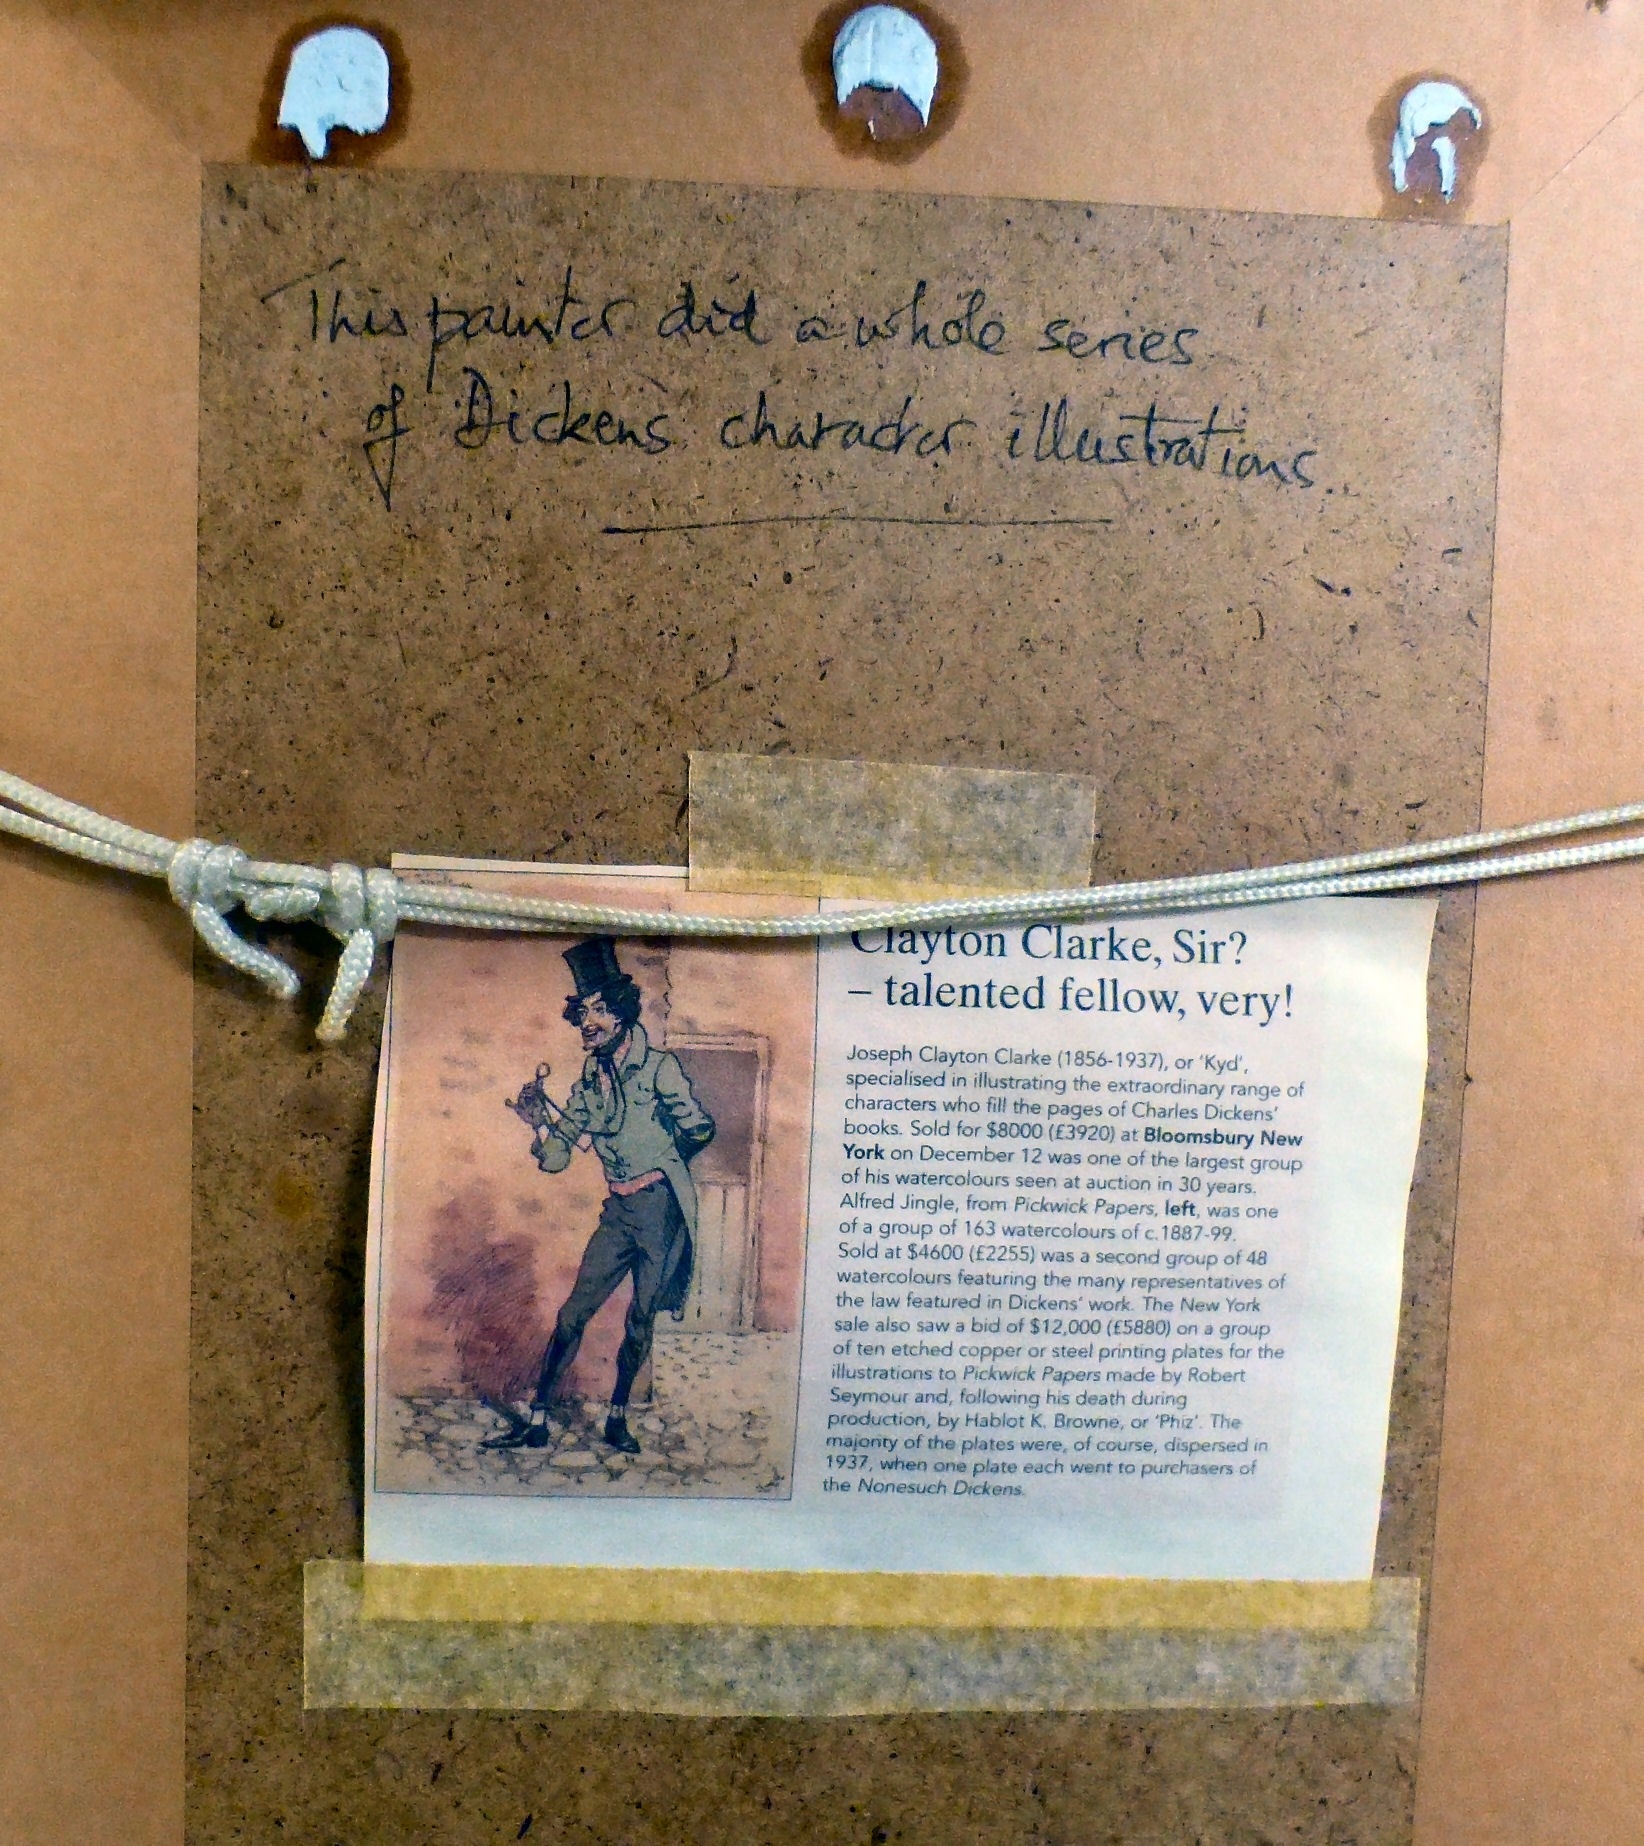 This painter did a whole series
of Dickens character illustrations
Clayton Clarke, Sir?
– talented fellow, very!
Joseph Clayton Clarke (1856-1937), or 'Kyd',
specialised in illustrating the extraordinary range of
characters who fill the pages of Charles Dickens'
books. Sold for $8000 (£3920) at Bloomsbury New
York on December 12 was one of the largest group
of his watercolours seen at auction in 30 years.
Alfred Jingle, from Pickwick Papers, left, was one
of a group of 163 watercolours of c.1887-99.
Sold at $4600 (£2255) was a second group of 48
watercolours featuring the many representatives of
the law featured in Dickens' work. The New York
sale also saw a bid of $12,000 (£5880) on a group
of ten etched copper or steel printing plates for the
illustrations to Pickwick Papers made by Robert
Seymour and, following his death during
production, by Hablot K. Browne, or 'Phiz'. The
majority of the plates were, of course, dispersed in
1937, when one plate each went to purchasers of
the Nonesuch Dickens.